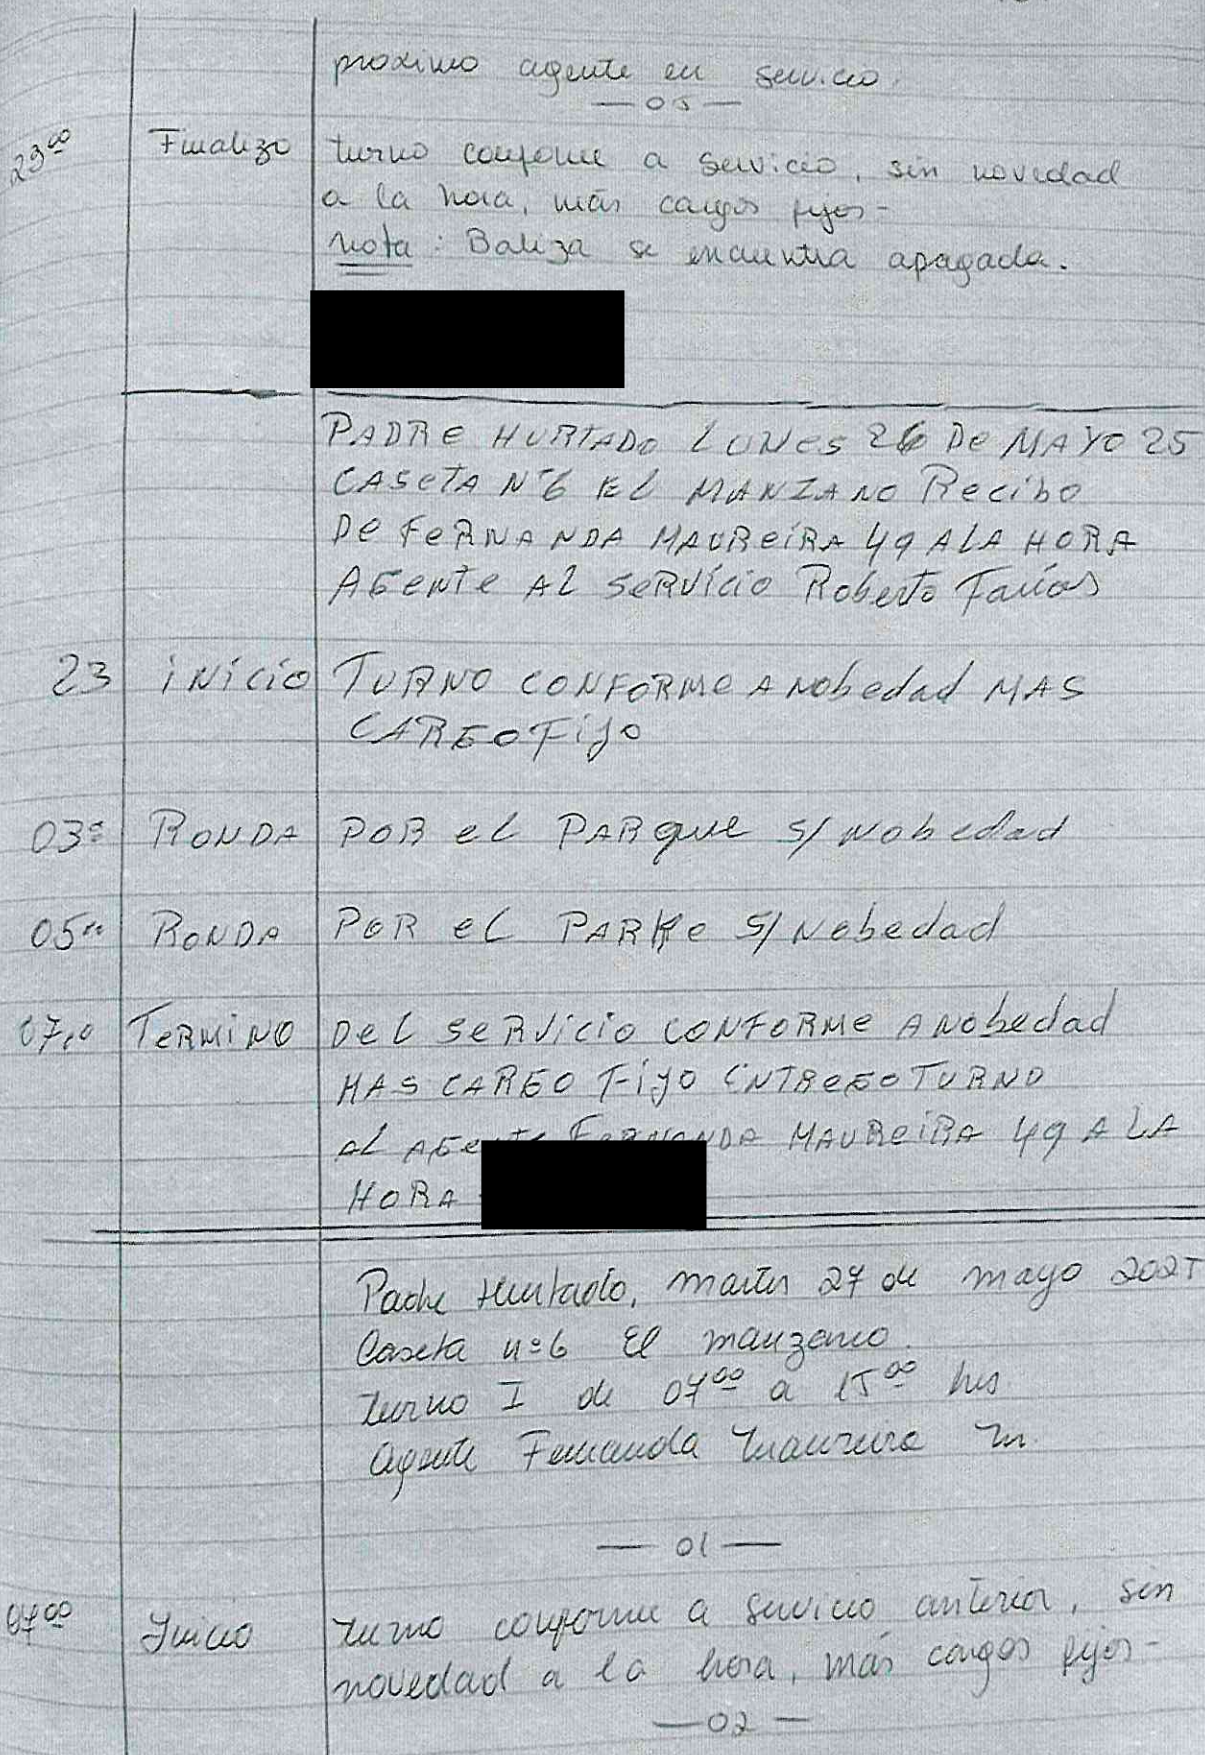 proximo agente en servicio.
— 05 —
23⁰⁰ Finalizo turno conforme a servicio, sin novedad
a la hora, más cargos fijos-
nota: Baliza se encuentra apagada.
PADRE HURTADO LUNES 26 DE MAYO 25
CASETA N°6 EL MANZANO Recibo
De FeRNANDA MAUReíRA 49 A LA HORA
AGente AL SeRVicio Roberto Farías
23 iNicio TURNO CONFORMe A Nobedad MAS
CARGO Fijo
03⁰⁰ RONDA POR eL PARque S/ Nobedad
05⁰⁰ RONDA POR eL PARKe S/ Nobedad
07,0 TeRMiNO DeL SeRVicio CONFORMe A Nobedad
MAS CARGO Fijo eNTReGO TURNO
AL AGente FeRNANDA MAUReiRA 49 A LA
HORA
Padre Hurtado, martes 27 de mayo 2025
Caseta n°6 El manzano.
Turno I de 07⁰⁰ a 15⁰⁰ hrs.
Agente Fernanda Maureira M.
— 01 —
07⁰⁰ Inicio turno conforme a servicio anterior, sin
novedad a la hora, más cargos fijos-
— 02 —